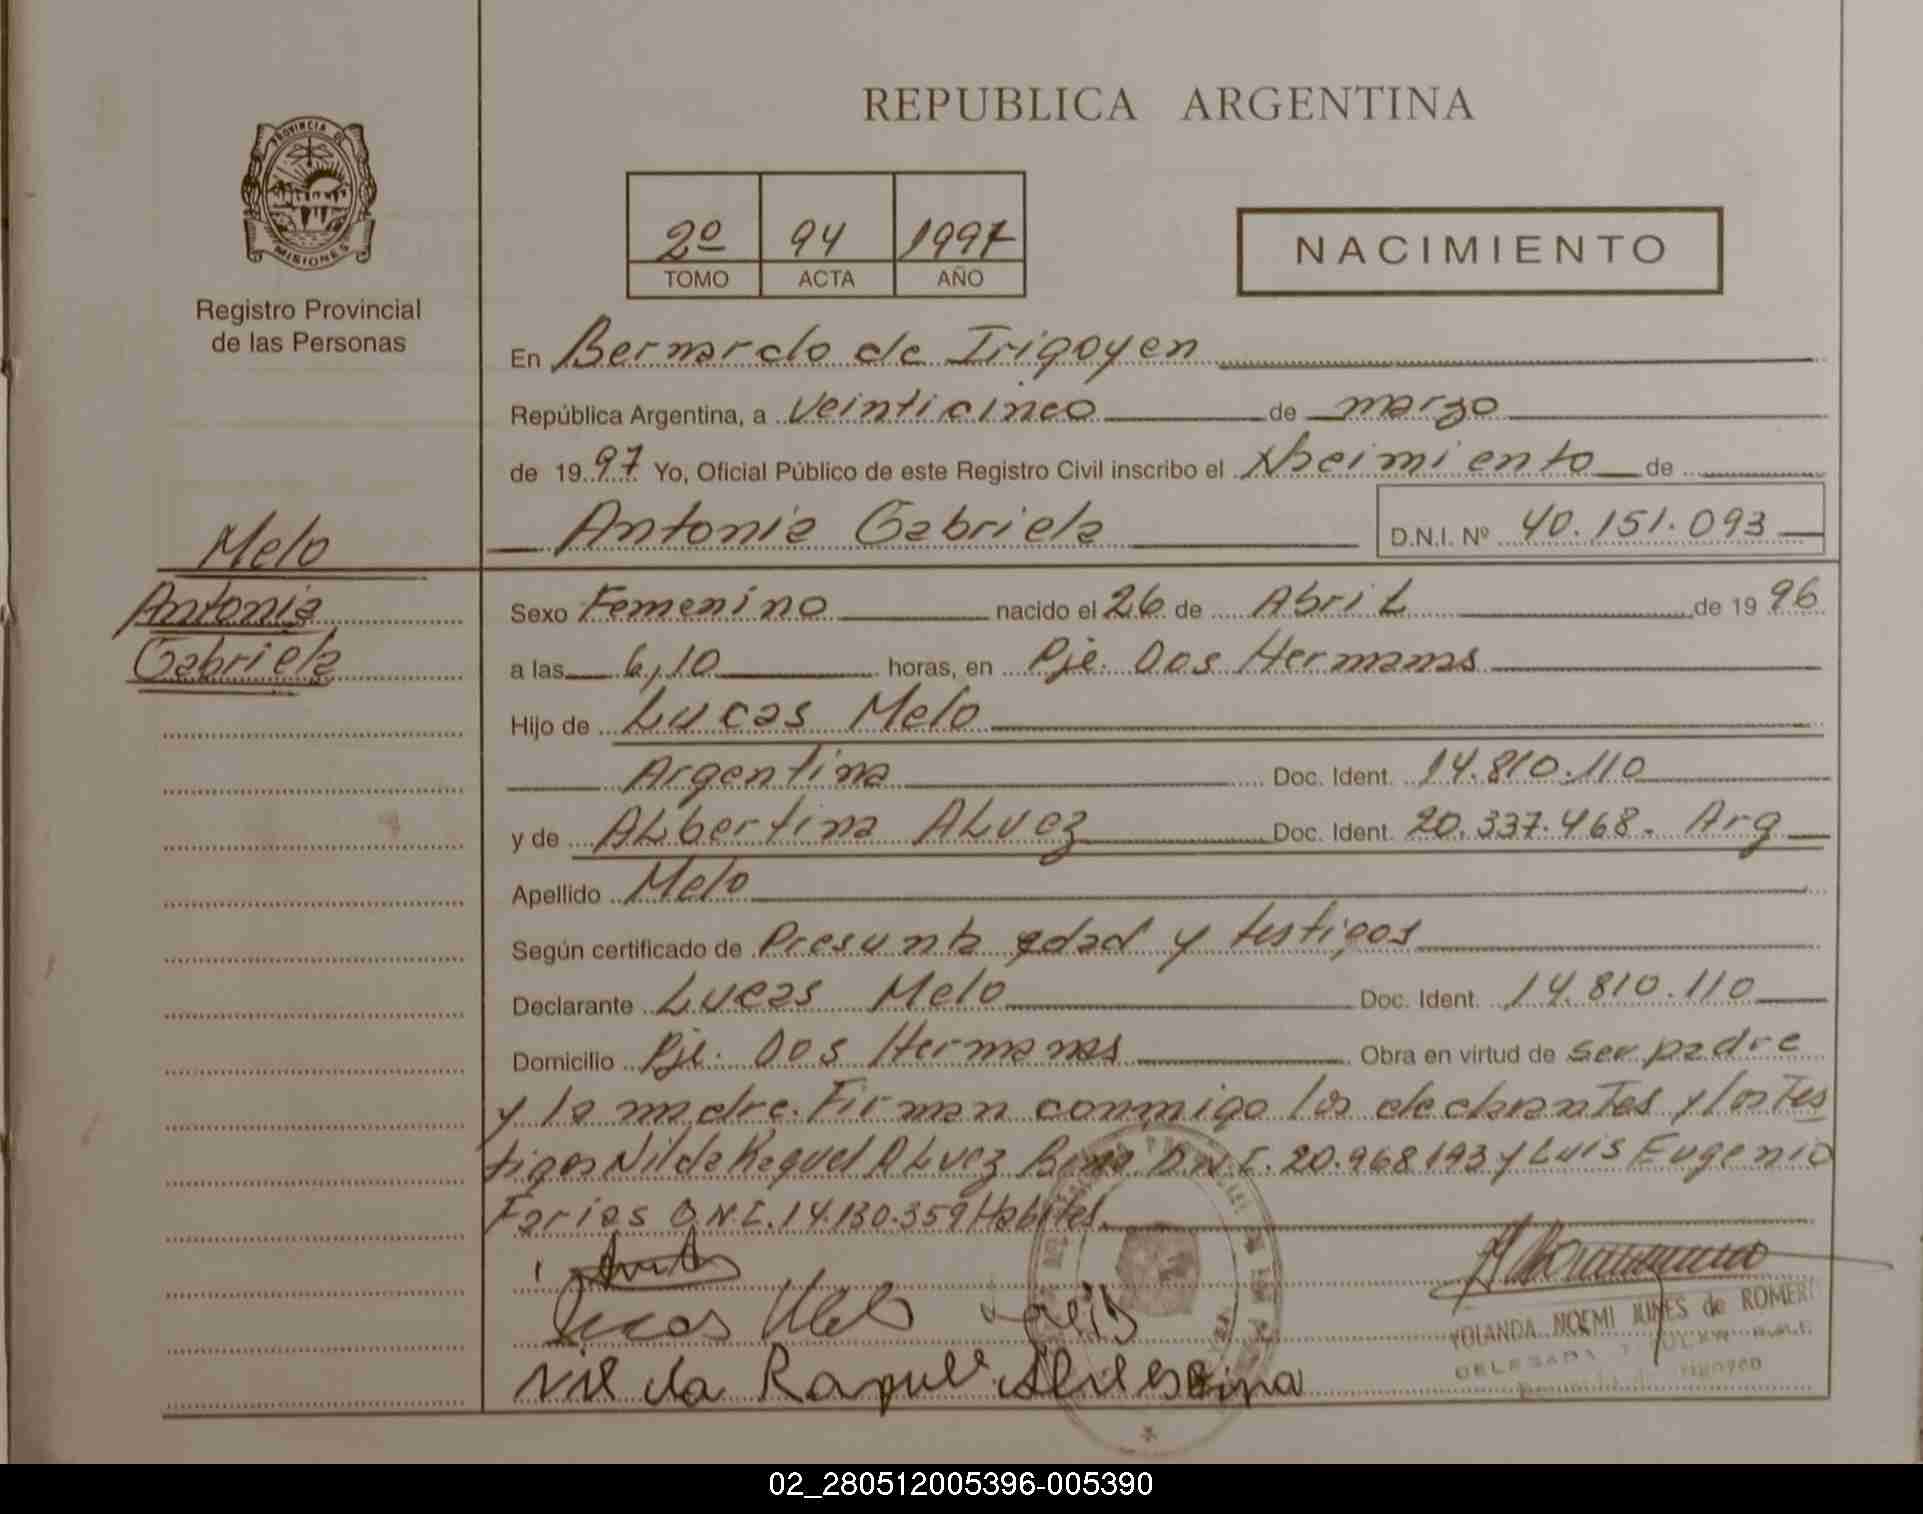 REPUBLICA ARGENTINA
PROVINCIA DE
MISIONES
Registro Provincial
de las Personas
2º 94 1997
TOMO ACTA AÑO
NACIMIENTO
En Bernardo de Irigoyen
República Argentina, a veinticinco de marzo
de 1997 Yo, Oficial Público de este Registro Civil inscribo el Nacimiento de
Antonia Gabriela D.N.I. Nº 40.151.093
Melo
Antonia
Gabriela
Sexo Femenino nacido el 26 de Abril de 1996
a las 6,10 horas, en Pje. Dos Hermanas
Hijo de Lucas Melo
Argentina Doc. Ident. 14.810.110
y de Albertina Alvez Doc. Ident. 20.337.468. Arg
Apellido Melo
Según certificado de Presunta edad y testigos
Declarante Lucas Melo Doc. Ident. 14.810.110
Domicilio Pje. Dos Hermanas Obra en virtud de ser padre
y la madre. Firman conmigo los declarantes y los tes
tigos Nilda Raquel Alvez D.N.I. 20.968.193 y Luis Eugenio
Farias D.N.I. 14.130.359 Habiles.
Lucas Melo
Nilda Raquel
YOLANDA NOEMI de ROMERO
DELEGADA
02_280512005396-005390